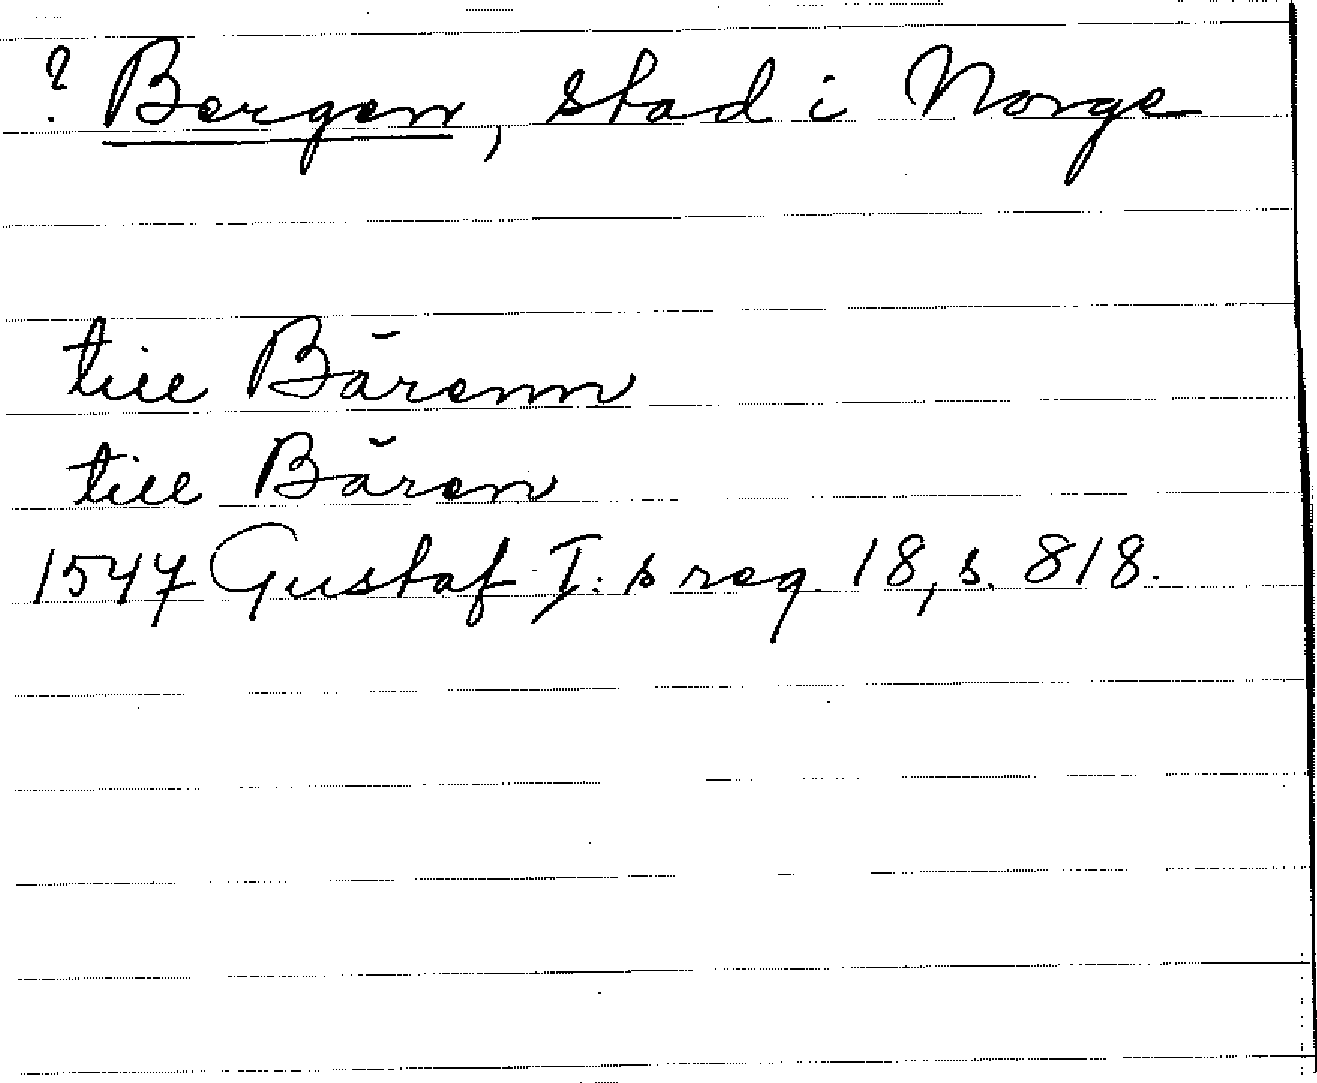 ? Bergen, stad i Norge
till Bärenn
till Bären
1547 Gustaf I:s reg. 18, s. 818.